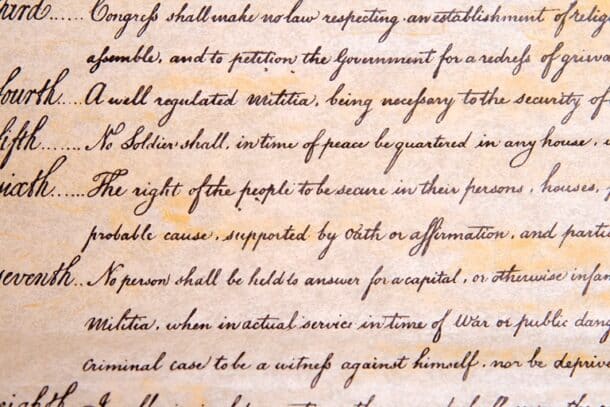 hird...... Congress shall make no law respecting an establishment of relig
assemble, and to petition the Government for a redress of grieva
fourth.... A well regulated Militia, being necessary to the security of
fifth....... No Soldier shall, in time of peace be quartered in any house,
sixth...... The right of the people to be secure in their persons, houses,
probable cause, supported by Oath or affirmation, and partic
seventh.. No person shall be held to answer for a capital, or otherwise infam
Militia, when in actual service in time of War or public dang
criminal case to be a witness against himself, nor be deprive